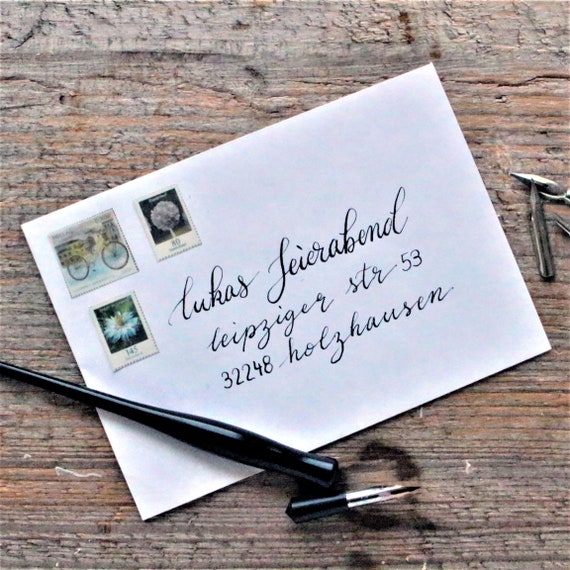 Lukas Feierabend
leipziger str 53
32248 holzhausen
80
345